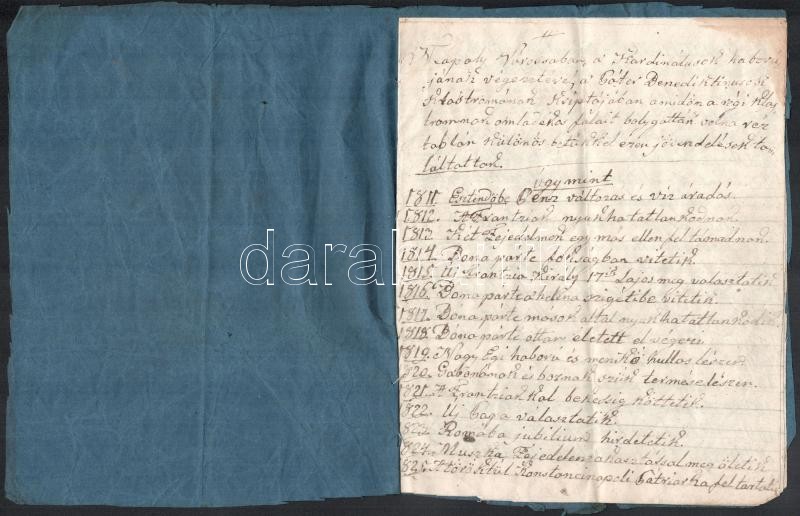 Neapoly Városában, a Kardinálisok háboru
jának végeztével, a Páter Benediktinusok
Klastromának Kriptájában amidőn a régi Klas
tromnak omladékos falait bolygatták volna réz
táblán különös betükkel ezen jövendölések ta
láltattak.
úgy mint
1811. Esztendőbe Pénz változás és víz áradás.
1812. A Frantziak nyughatatlankodnak.
1813. Két Fejedelmek egymás ellen fel támadnak.
1814. Bona párte fogságban vitetik.
1815. Uj Frantzia Király 17dik Lajos meg választatik
1816. Bóna párte a heléna szigetibe vitetik.
1817. Bóna párte mások által nyughatatlankodik.
1818. Bóna párte ottan életett el végezi.
1819. Nagy Égi háború és menikő hullás lészen.
1820. Gabonának és bornak szük termése lészen.
1821. A Frantziakkal békesség köttetik.
1822. Uj Pápa választatik.
1823. Romába jubilium hirdetetik.
1824. Muszka Fejedelem akasztással meg öletik
1825. A töröktül Konstancinápoli Pátriárka fel tartatik
darabanth